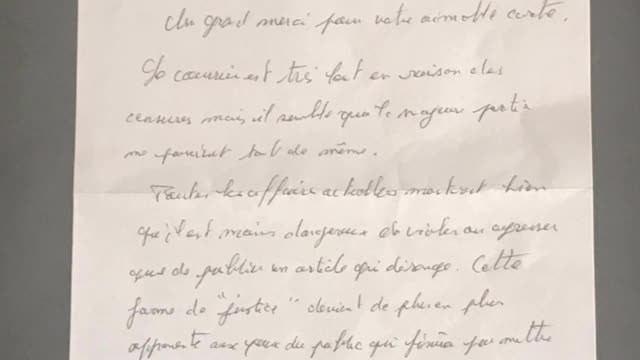 Un grand merci pour votre aimable carte.
Le courrier est très lent en raison des
censures mais il semble que la majeure partie
me parvient tout de même.
Toutes les affaires actuelles montrent bien
qu'il est moins dangereux de violer ou agresser
que de publier un article qui dérange. Cette
forme de "justice" devient de plus en plus
apparente aux yeux du public qui finira par mettre